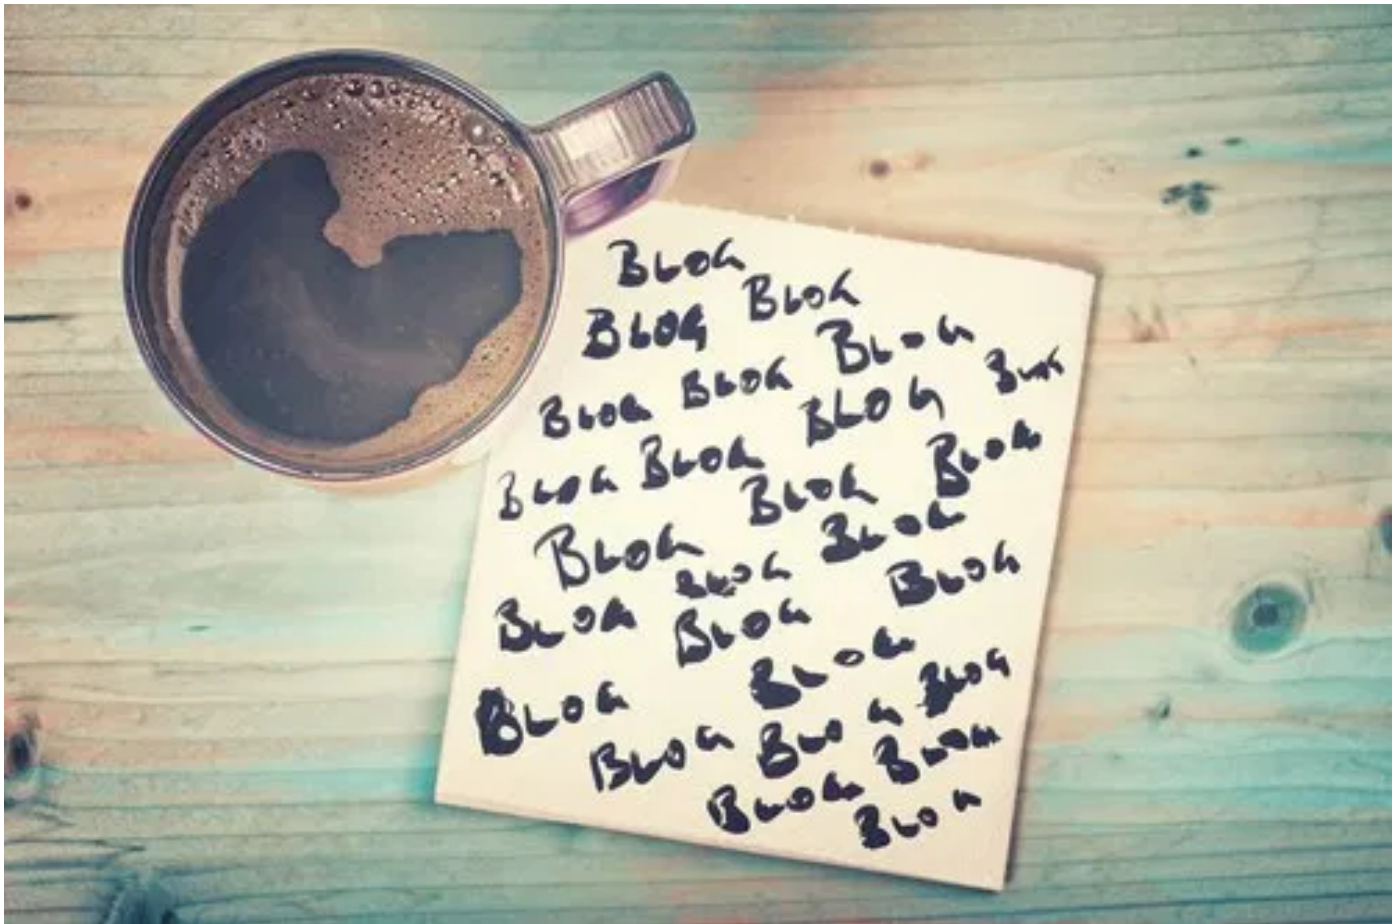 BLOG
BLOG BLOG
BLOG BLOG BLOG
BLOG BLOG BLOG BLOG
BLOG BLOG BLOG
BLOG BLOG BLOG
BLOG BLOG BLOG
BLOG BLOG BLOG
BLOG BLOG
BLOG BLOG
BLOG